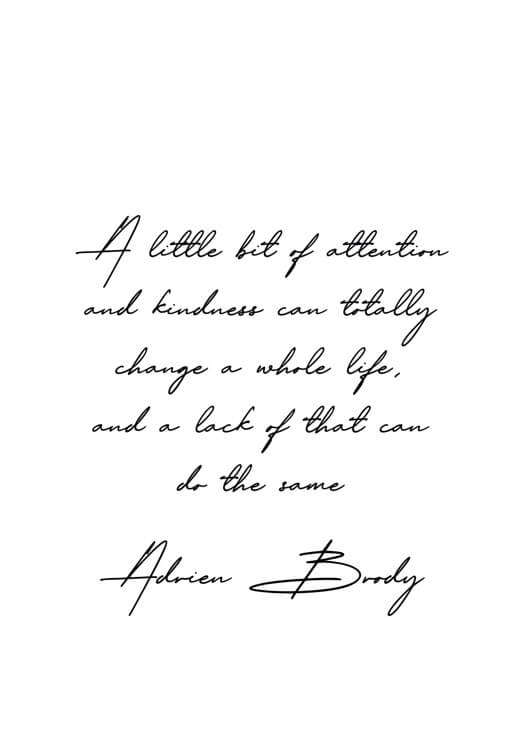 A little bit of attention
and kindness can totally
change a whole life,
and a lack of that can
do the same
Adrien Brody